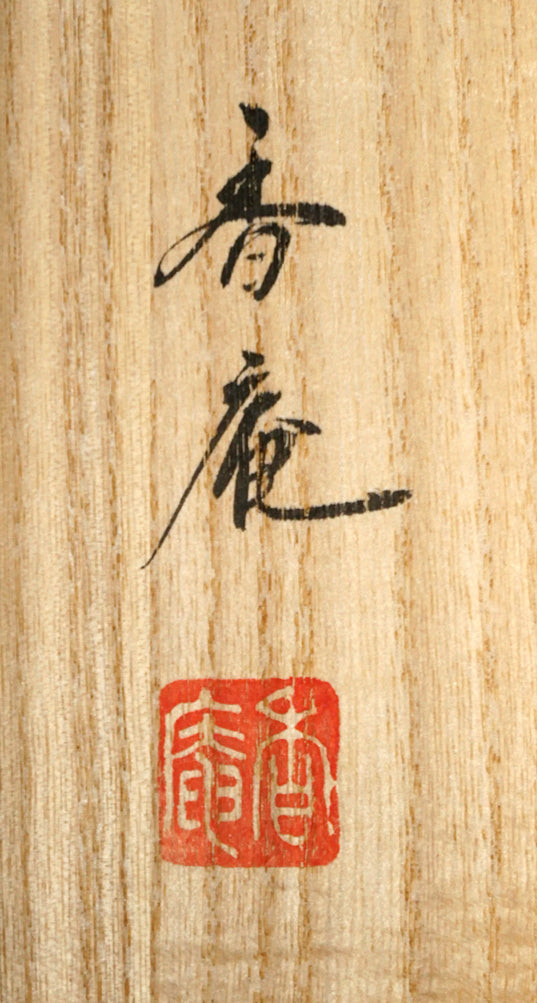 香庵
香庵